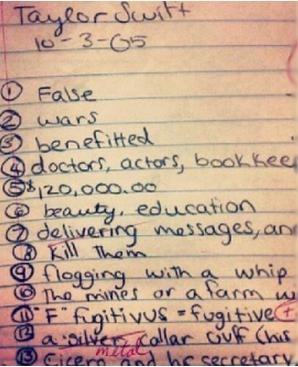 Taylor Swift
10-3-05
① False
② wars
③ benefitted
④ doctors, actors, bookkee
⑤ $120,000.00
⑥ beauty, education
⑦ delivering messages, an
⑧ Kill them
⑨ flogging with a whip
⑩ The mines or a farm w
⑪ "F" fugitivus = fugitive +
⑫ a silver collar cuff (his
metal
⑬ Cicero and his secretary